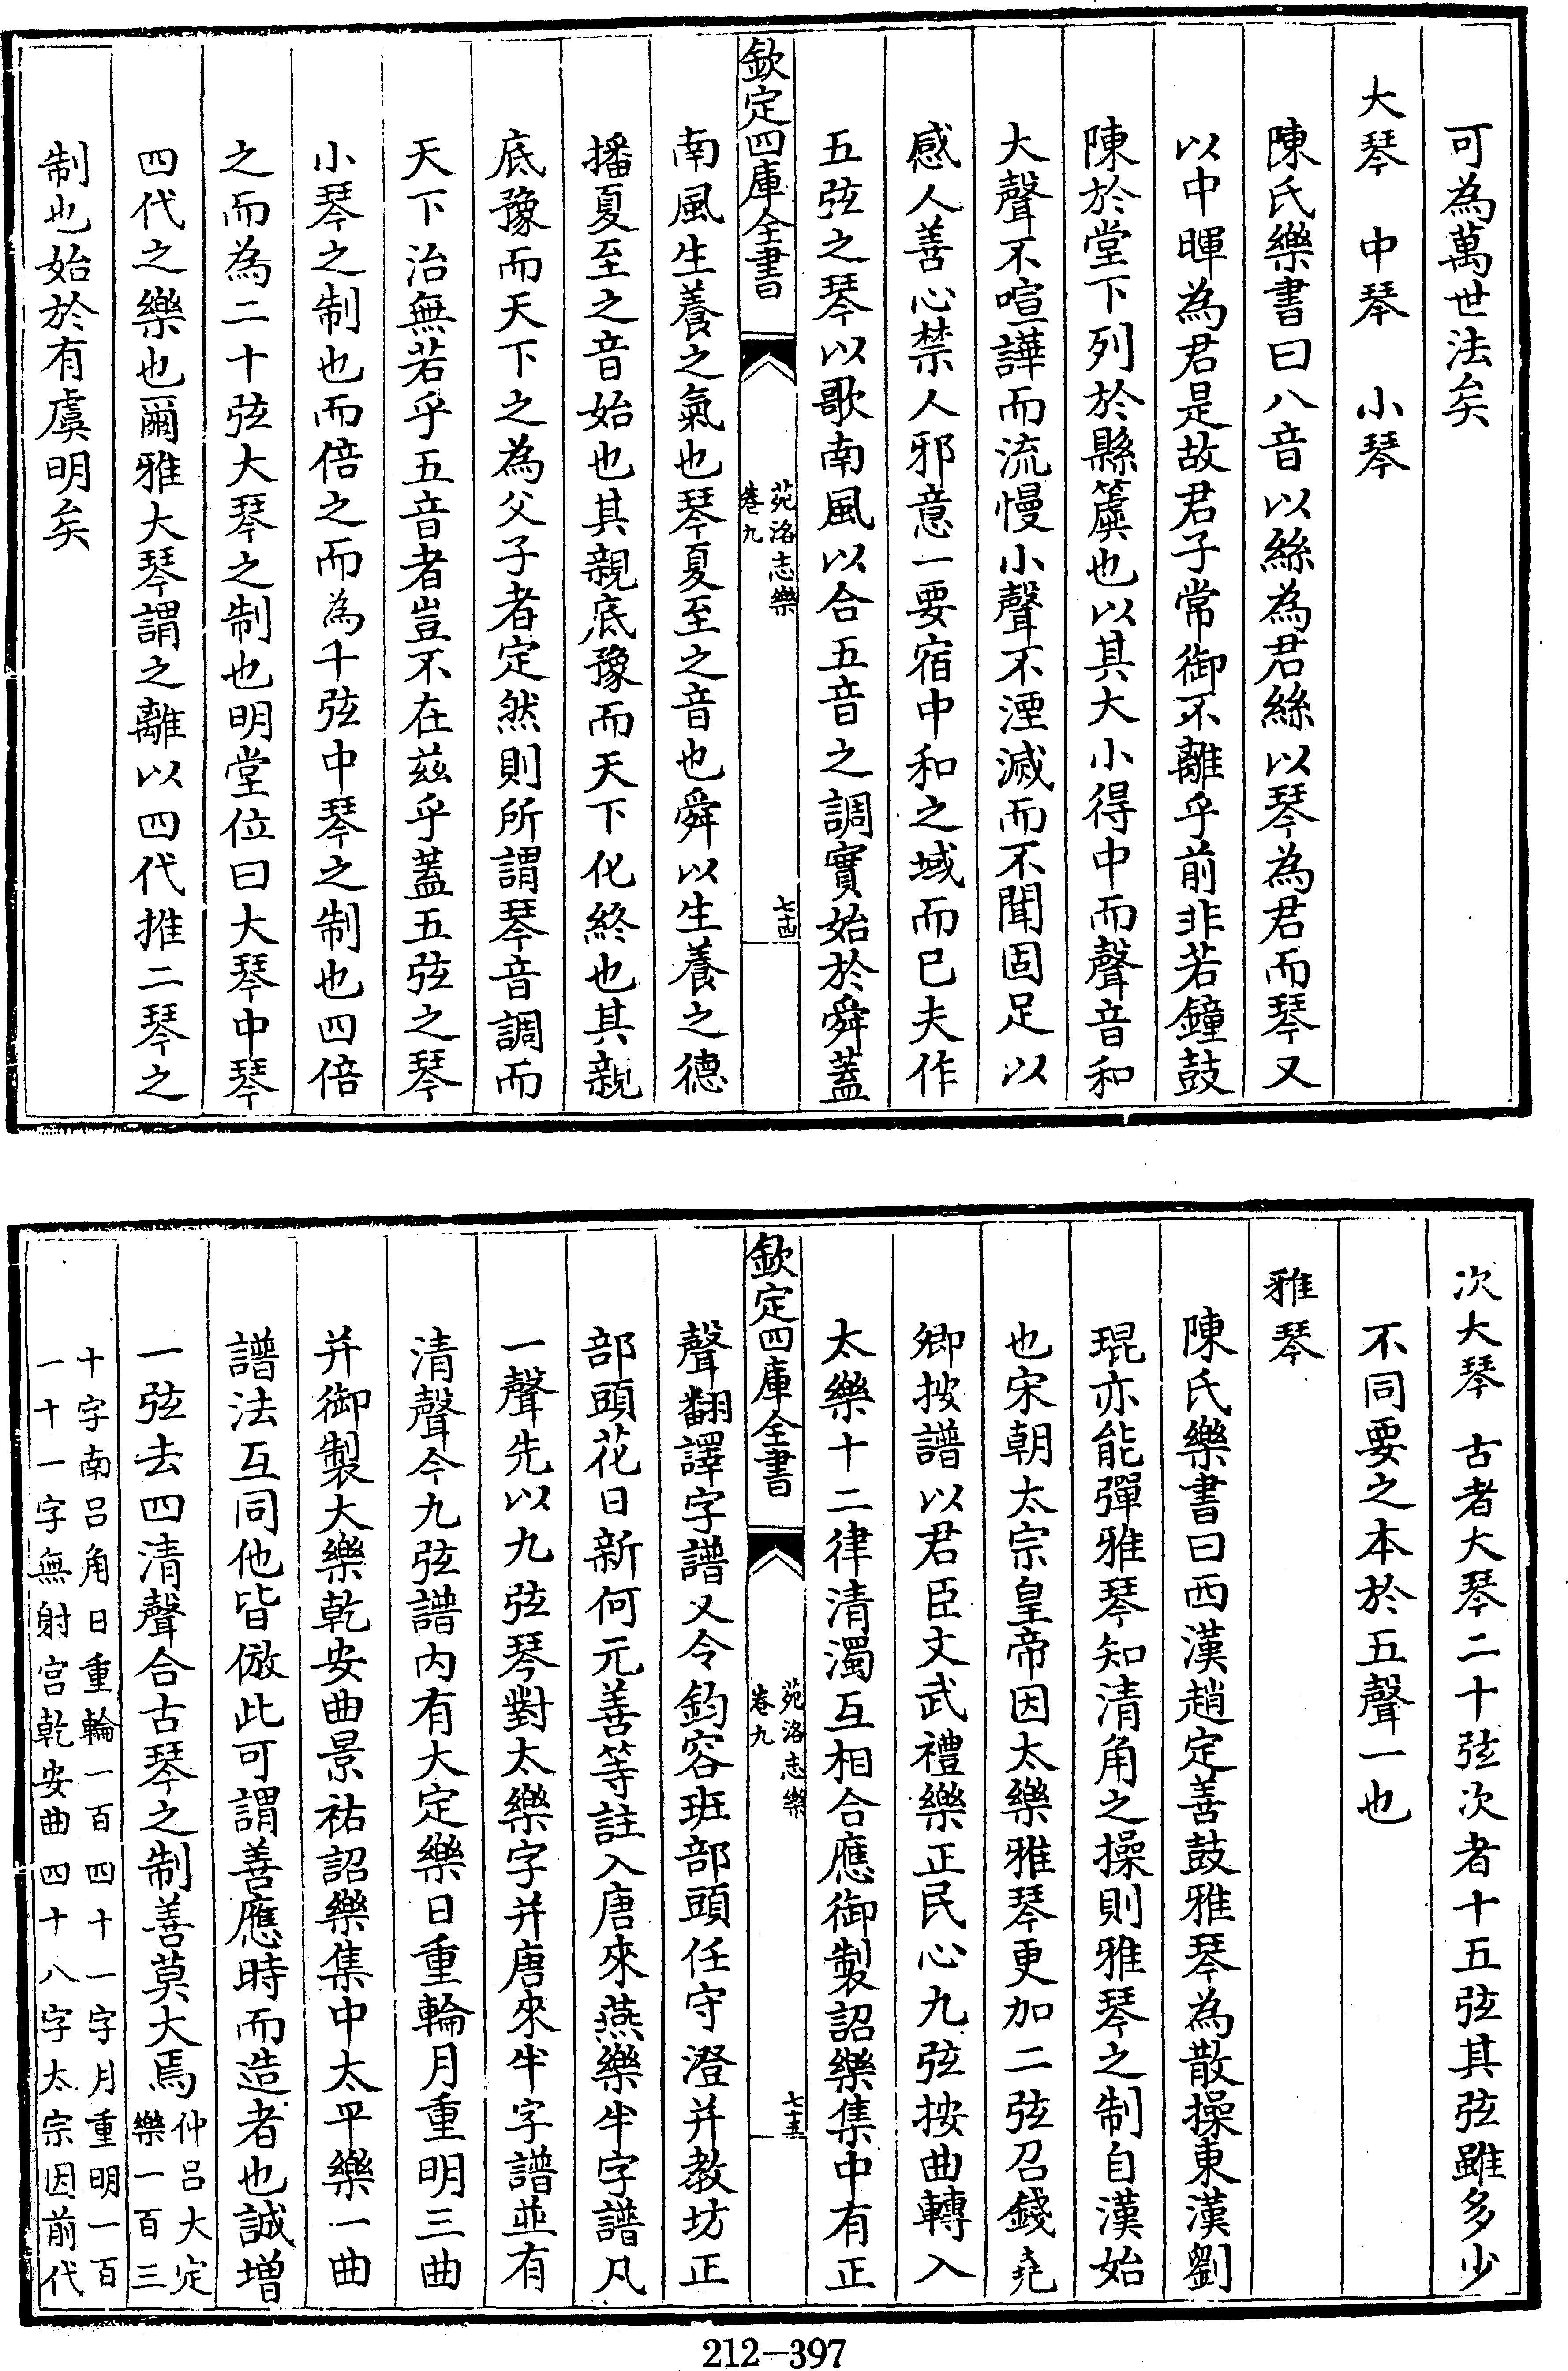 可為萬世法矣
大琴　中琴　小琴
陳氏樂書曰八音以絲為君絲以琴為君而琴又
以中暉為君是故君子常御不離乎前非若鐘鼓
陳於堂下列於縣簴也以其大小得中而聲音和
大聲不喧譁而流慢小聲不湮滅而不聞固足以
感人善心禁人邪意一要宿中和之域而已夫作
五弦之琴以歌南風以合五音之調實始於舜蓋
欽定四庫全書
苑洛志樂
卷九
七十四
南風生養之氣也琴夏至之音也舜以生養之德
播夏至之音始也其親底豫而天下化終也其親
底豫而天下之為父子者定然則所謂琴音調而
天下治無若乎五音者豈不在茲乎蓋五弦之琴
小琴之制也而倍之而為十弦中琴之制也四倍
之而為二十弦大琴之制也明堂位曰大琴中琴
四代之樂也爾雅大琴謂之離以四代推二琴之
制也始於有虞明矣
次大琴　古者大琴二十弦次者十五弦其弦雖多少
不同要之本於五聲一也
雅琴
陳氏樂書曰西漢趙定善鼓雅琴為散操東漢劉
琨亦能彈雅琴知清角之操則雅琴之制自漢始
也宋朝太宗皇帝因太樂雅琴更加二弦召錢堯
卿按譜以君臣文武禮樂正民心九弦按曲轉入
太樂十二律清濁互相合應御製詔樂集中有正
欽定四庫全書
苑洛志樂
卷九
七十五
聲翻譯字譜又令鈞容班部頭任守澄并教坊正
部頭花日新何元善等註入唐來燕樂半字譜凡
一聲先以九弦琴對太樂字并唐來半字譜並有
清聲今九弦譜內有大定樂日重輪月重明三曲
并御製大樂乾安曲景祐詔樂集中太平樂一曲
譜法互同他皆倣此可謂善應時而造者也誠增
一弦去四清聲合古琴之制善莫大焉仲呂大定
樂一百三
十字南呂角日重輪一百四十一字月重明一百
一十一字無射宮乾安曲四十八字太宗因前代
212-397